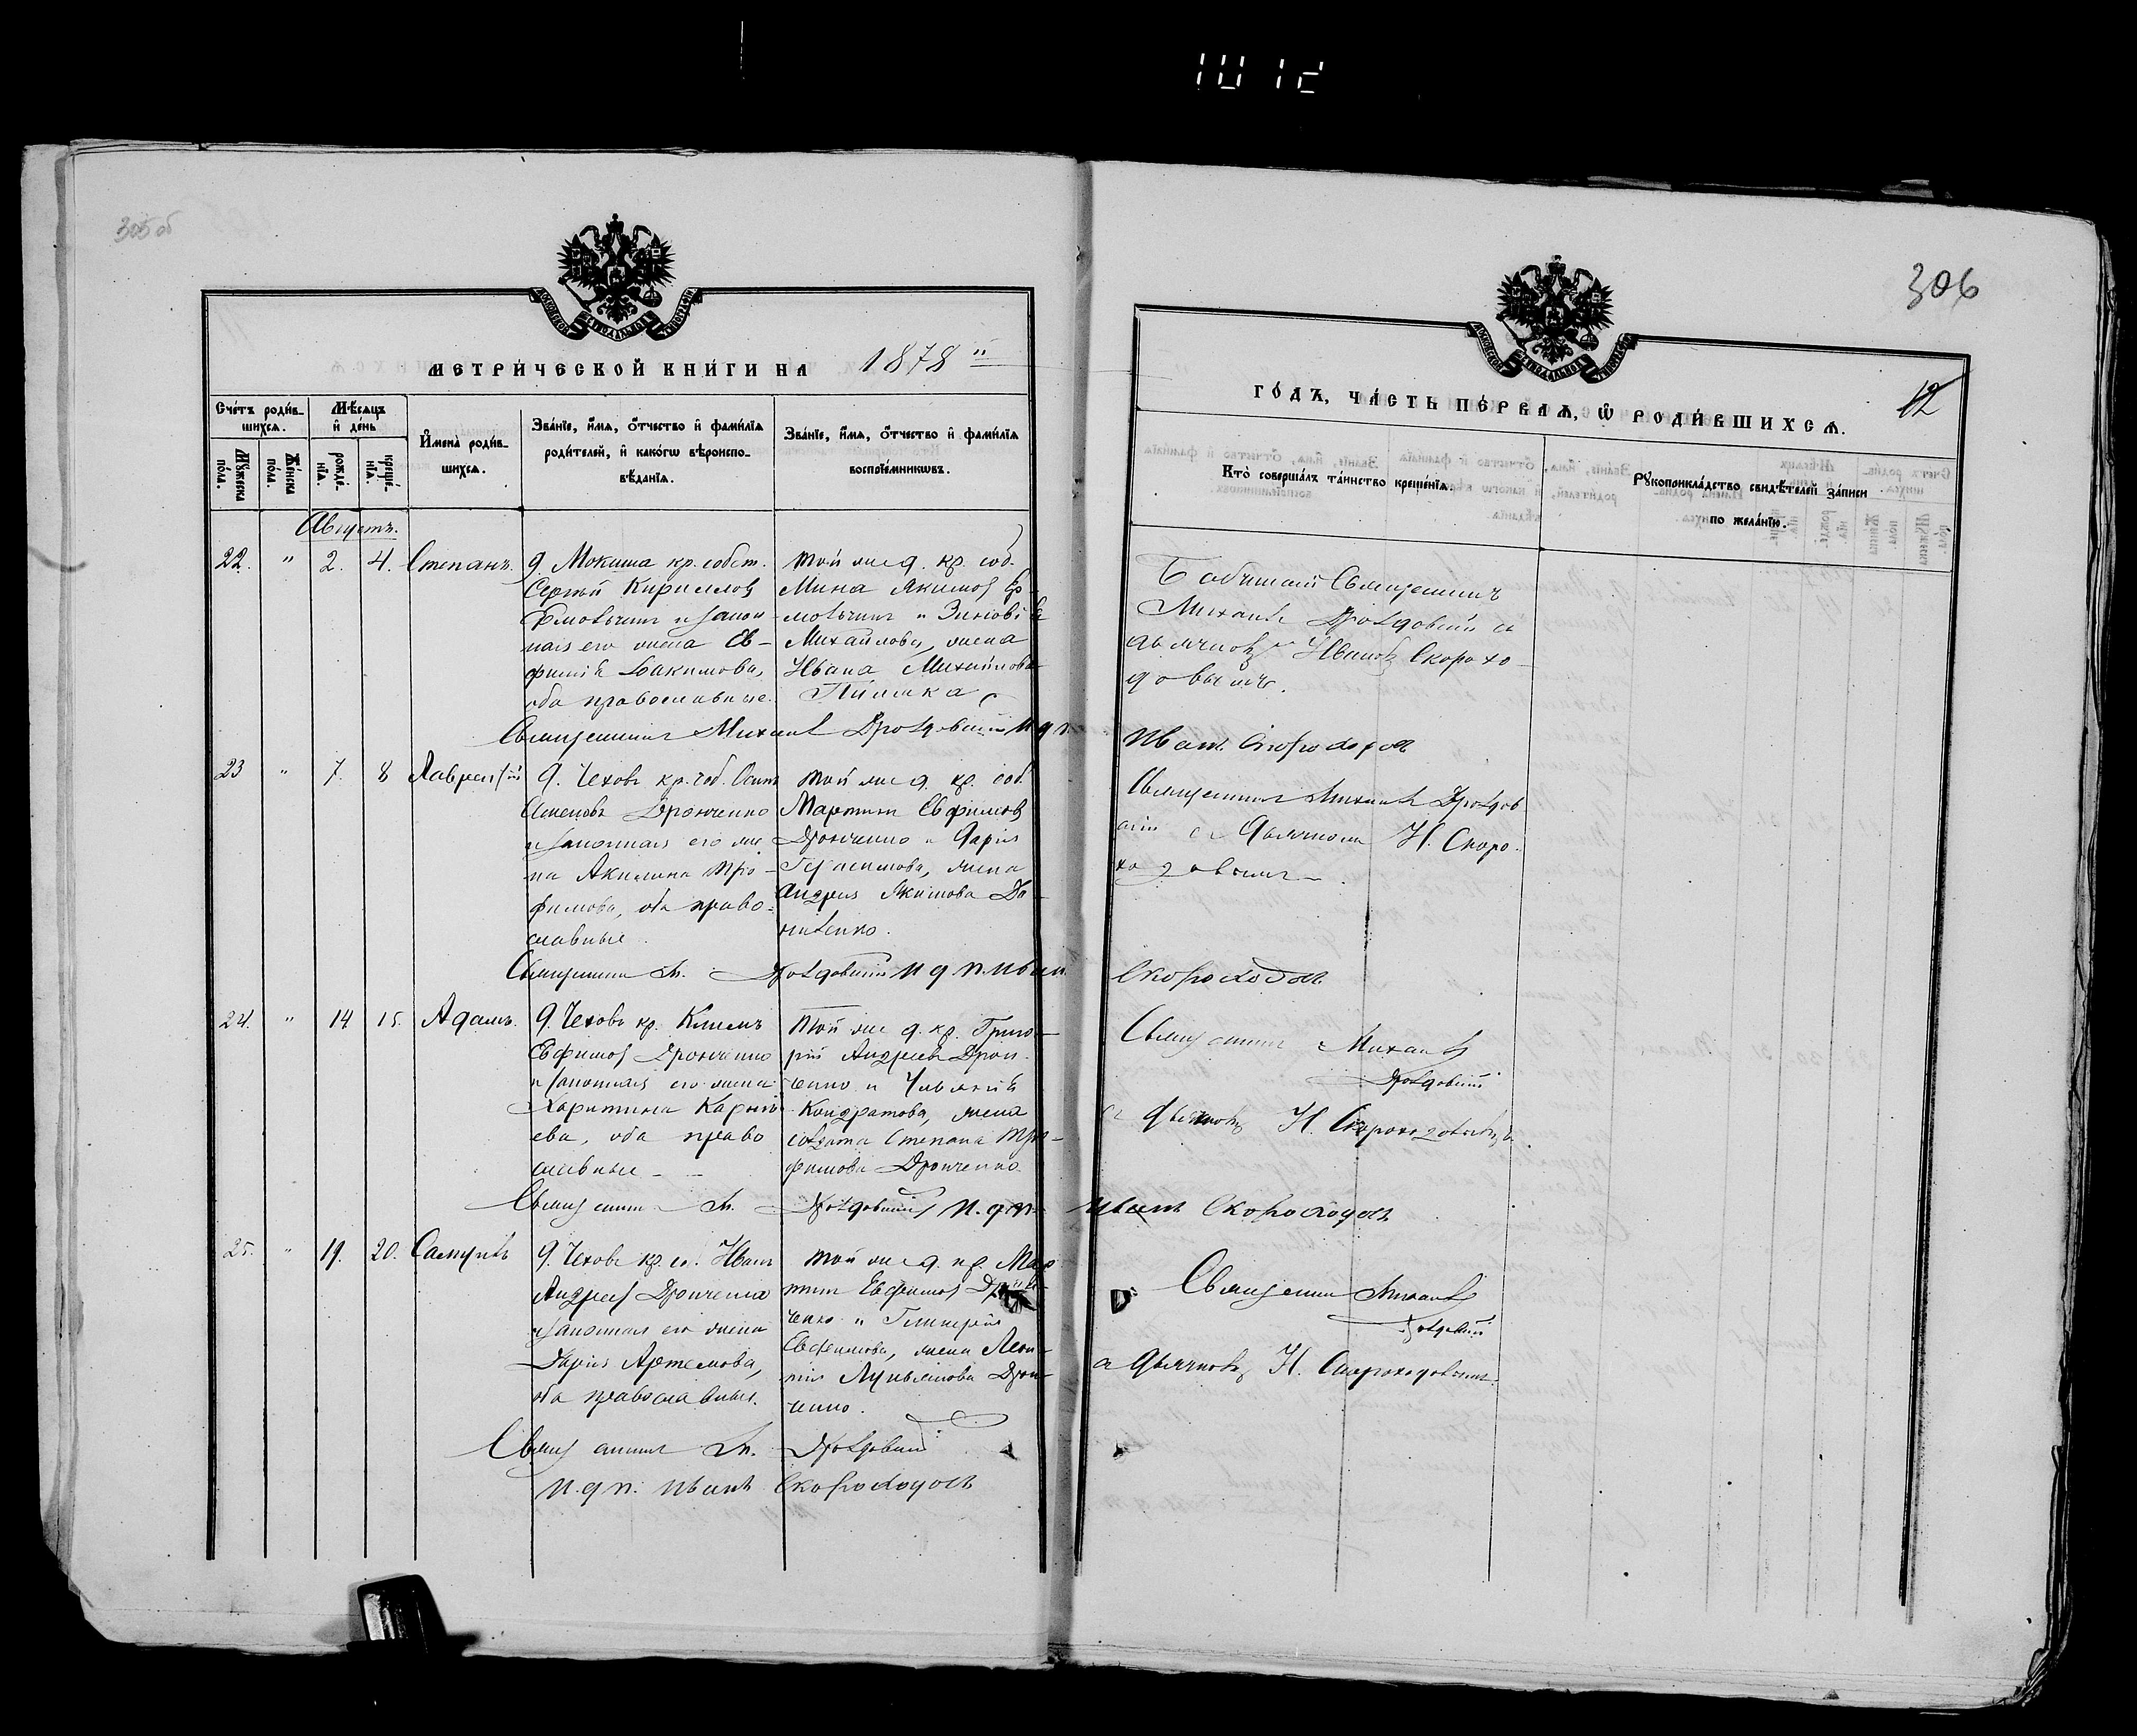 305 об
306
МЕТРИ́ЧЕСКОЙ КНИ́ГИ НА 1878
ГО́ДЪ, ЧА́СТЬ ПЕ́РВАѦ, Ѡ РОДИ́ВШИХСѦ.
12
Сче́тъ роди́в-
шихсѧ.
Мѣ́сѧцъ
и҆ де́нь
Мꙋ́жеска
по́ла.
Же́нска
по́ла.
рожде́-
нїѧ.
креще́-
нїѧ.
И҆мена̀ роди́в-
шихсѧ.
Зва́нїе, и҆́мѧ, ѻ҆́тчество и҆ фами́лїѧ
роди́телей, и҆ како́гѡ вѣроиспо-
вѣ́данїѧ.
Зва́нїе, и҆́мѧ, ѻ҆́тчество и҆ фами́лїѧ
воспрїе́мникѡвъ.
Кто̀ соверша́лъ та́инство креще́нїѧ.
Рꙋкоприкла́дство свидѣ́телей за́писи
по жела́нїю.
Августъ.
22. " 2. 4. Степанъ.
д. Мокиша кр. собст.
Сергѣй Кирилловъ
и закон-
ная его жена Ев-
фимія Іоакимова,
оба православные.
Той же д. кр. соб.
Мина Якимовъ
и Зиновія
Михайлова, жена
Ивана Михайлова
Священникъ
Михаилъ Дроздовскій съ
дьячкомъ Иваномъ Скорохо-
довымъ.
Священникъ Михаилъ Дроздовскій И д п.
Иванъ Скороходовъ
23 " 7. 8 Лаврентій
Д. Чехова кр. соб. Осипъ
Семеновъ Дронченко
и законная его же-
на Акилина Тро-
фимова, оба право-
славные.
Той же д. кр. соб.
Мартинъ Евфимовъ
Дронченко и Дарія
Герасимова, жена
Андрея Якимова До-
ниченко.
Священникъ Михаилъ Дроздов-
скій съ Дьячкомъ И. Скоро-
ходовымъ.
Священникъ М. Дроздовскій И д п. Иванъ
Скороходовъ
24. " 14 15. Адамъ.
Д. Чехова кр. Климъ
Евфимовъ Дронченко
и законная его жена
Харитина Карпѣ-
ева, оба право-
славные
Той же д. кр. Григо-
рій Андреевъ Дрон-
ченко и Ульянія
Кондратова, жена
солдата Степана Тро-
фимова Дронченко
Священникъ Михаилъ
Дроздовскій
съ дьячкомъ И. Скороходовымъ.
Священникъ М. Дроздовскій И. д п.
Иванъ Скороходовъ
25. " 19. 20. Самуилъ
Д. Чехова кр. со. Иванъ
Андреевъ Дронченко
и законная его жена
Дарія Артемова,
оба православные.
Той же д. кр. Мар-
тинъ Евфимовъ Дрон-
ченко и Гликерія
Евфимова, жена Леон-
тія Лукьянова Дрон-
ченко.
Священникъ Михаилъ
Дроздовскій
съ Дьячкомъ И. Скороходовымъ.
Священникъ М. Дроздовскій
И. д п. Иванъ Скороходовъ